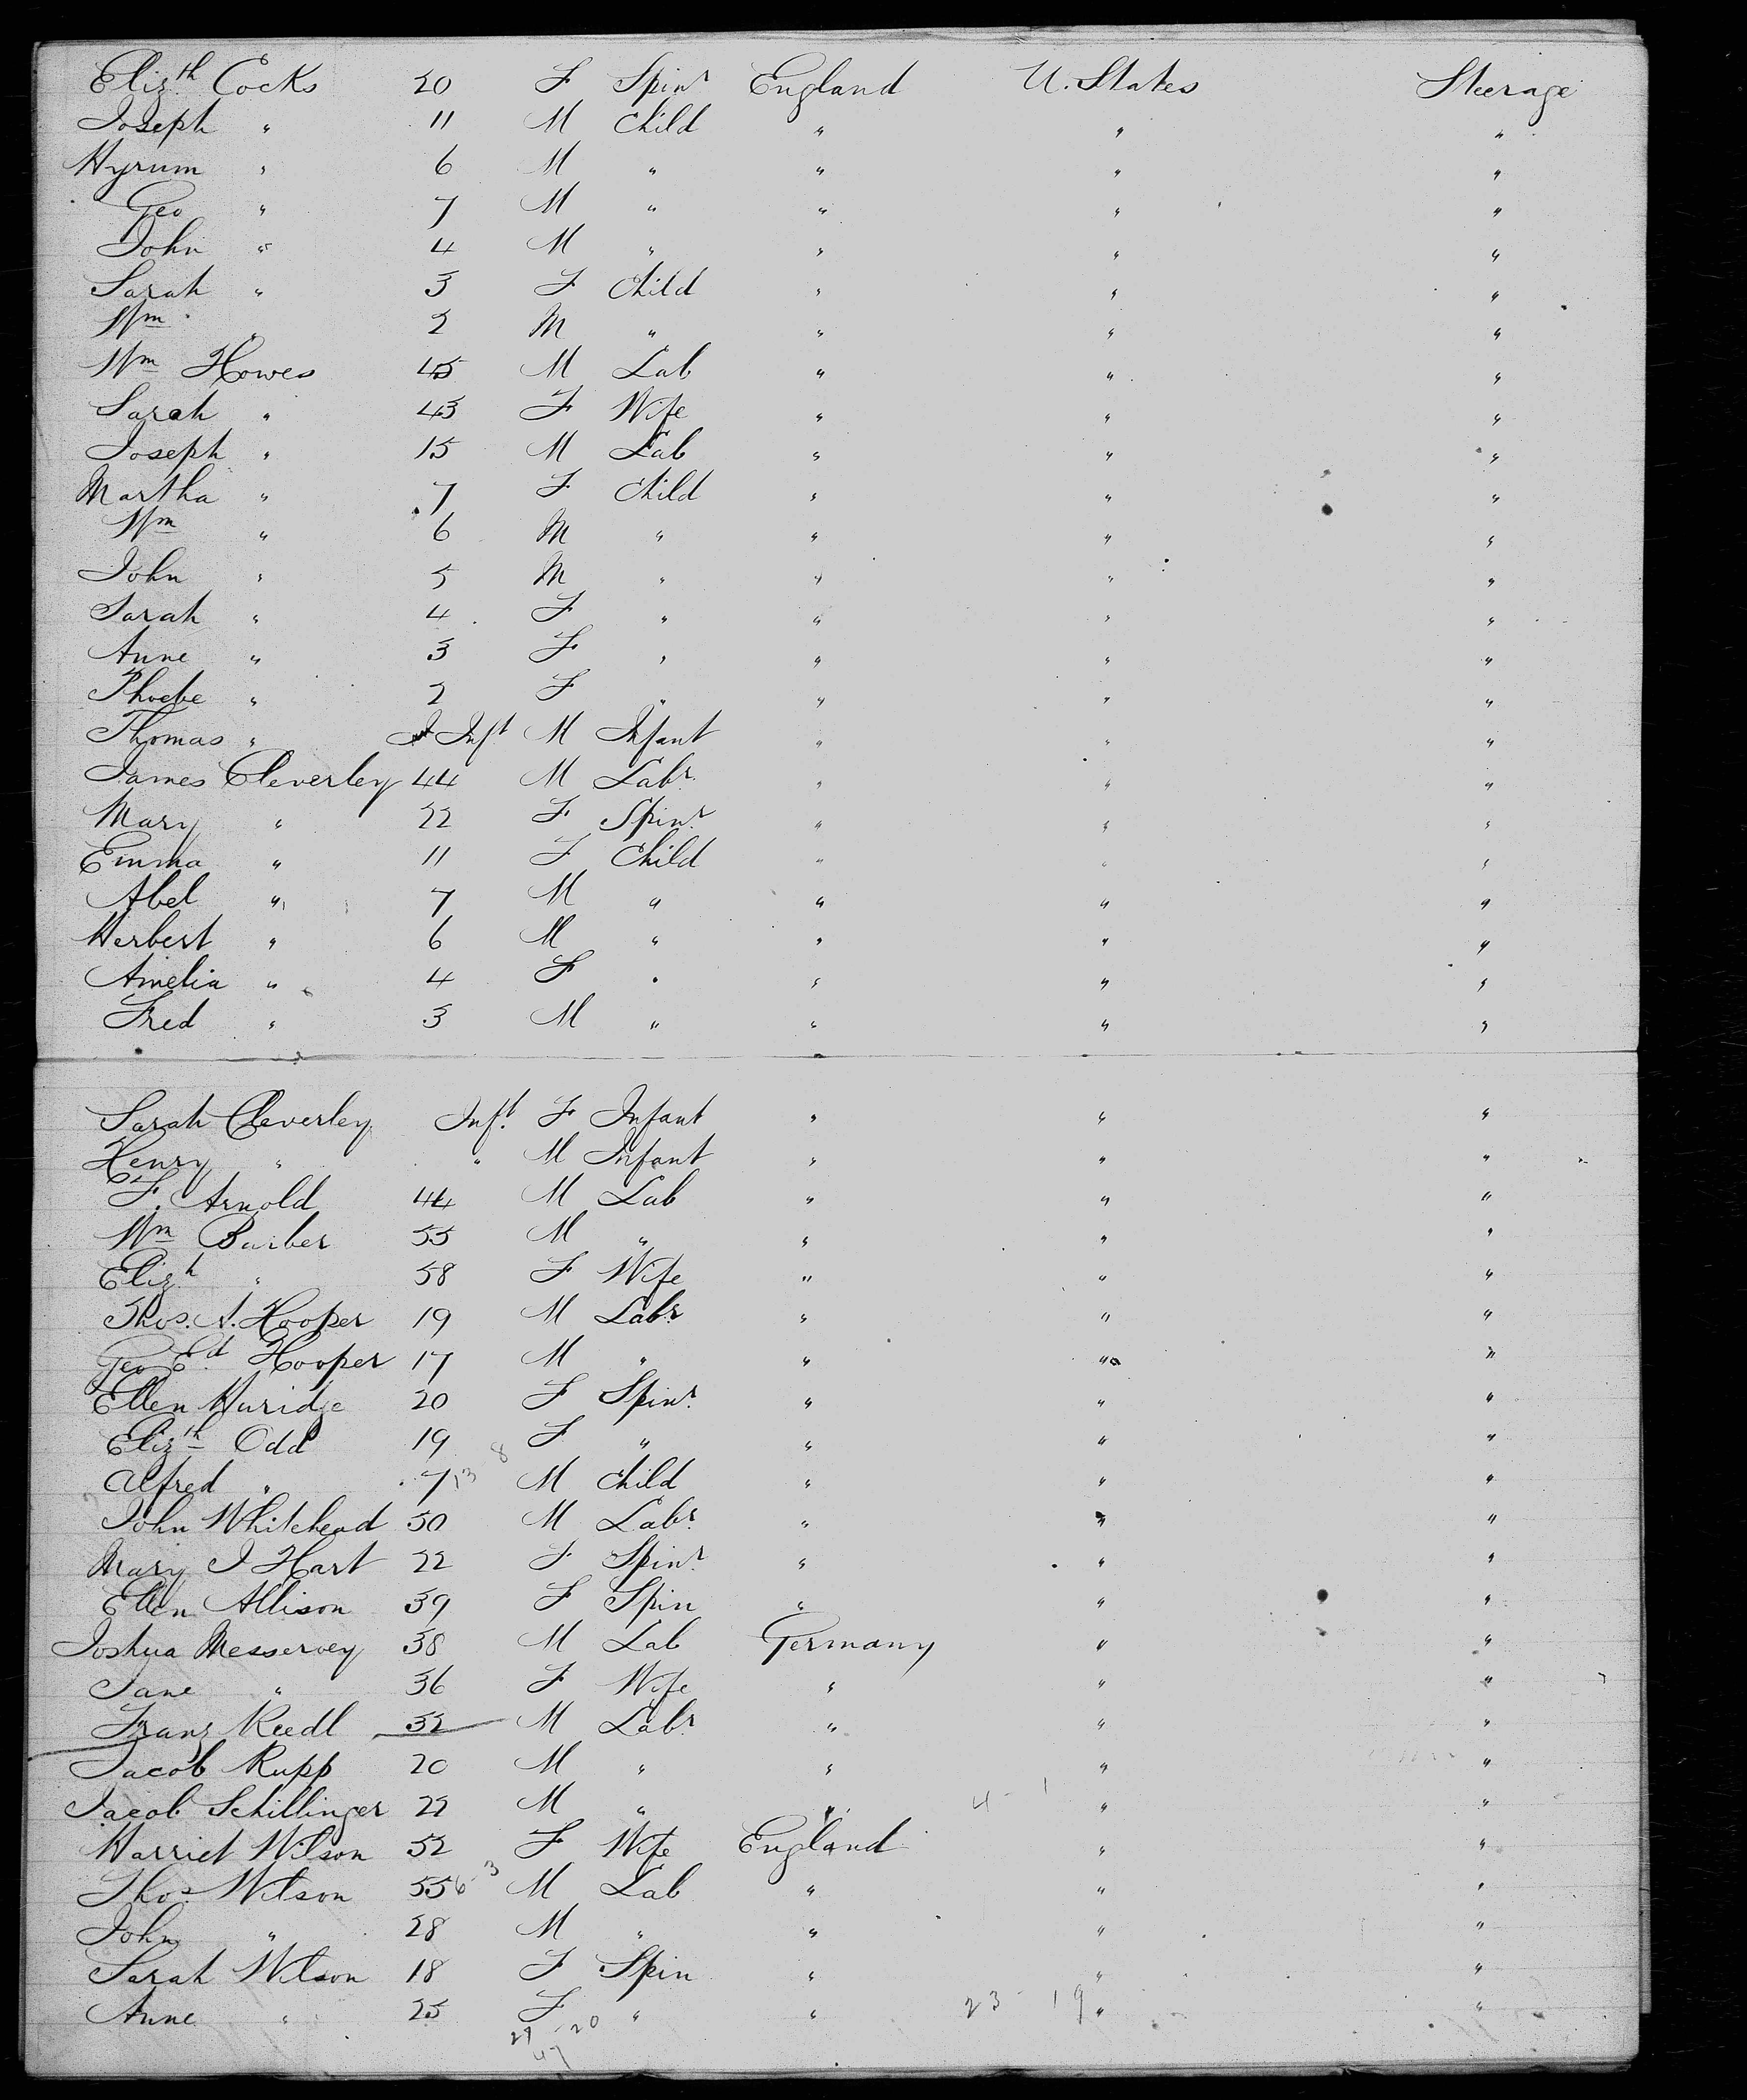 Elizth Cocks 20 F Spinr England U. States Steerage
Joseph " 11 M Child " " "
Hyrum " 6 M " " " "
Geo " 7 M " " " "
John " 4 M " " " "
Sarah " 3 F Child " " "
Wm " 2 M " " " "
Wm Howes 45 M Lab " " "
Sarah " 43 F Wife " " "
Joseph " 15 M Lab " " "
Martha " 7 F Child " " "
Wm " 6 M " " " "
John " 5 M " " " "
Sarah " 4 F " " " "
Anne " 3 F " " " "
Phoebe " 2 F " " " "
Thomas " Inft M Infant " " "
James Cleverley 44 M Labr " " "
Mary " 22 F Spinr " " "
Emma " 11 F Child " " "
Abel " 7 M " " " "
Herbert " 6 M " " " "
Amelia " 4 F " " " "
Fred " 3 M " " " "
Sarah Cleverley Inft F Infant " " "
Henry " " M Infant " " "
F. Arnold 44 M Lab " " "
Wm Barber 55 M " " " "
Elizh " 58 F Wife " " "
Thos. A. Hooper 19 M Labr " " "
Geo Ed Hooper 17 M " " " "
Ellen Huridge 20 F Spinr " " "
Elizth Odd 19 F " " " "
Alfred " 7 13 8 M Child " " "
John Whitehead 50 M Labr " " "
Mary J Hart 22 F Spinr " " "
Ellen Allison 39 F Spin " " "
Joshua Messervey 38 M Lab Germany " "
Jane " 36 F Wife " " "
Franz Reedl 32 M Labr " " "
Jacob Rupp 20 M " " " "
Jacob Schillinger 22 M " " 4 - 1 " "
Harriet Wilson 52 F Wife England " "
Thos Wilson 55 6-3 M Lab " " "
John " 28 M " " " "
Sarah Wilson 18 F Spin " " "
Anne " 25 F " " 23 - 19 " "
27 - 20
47